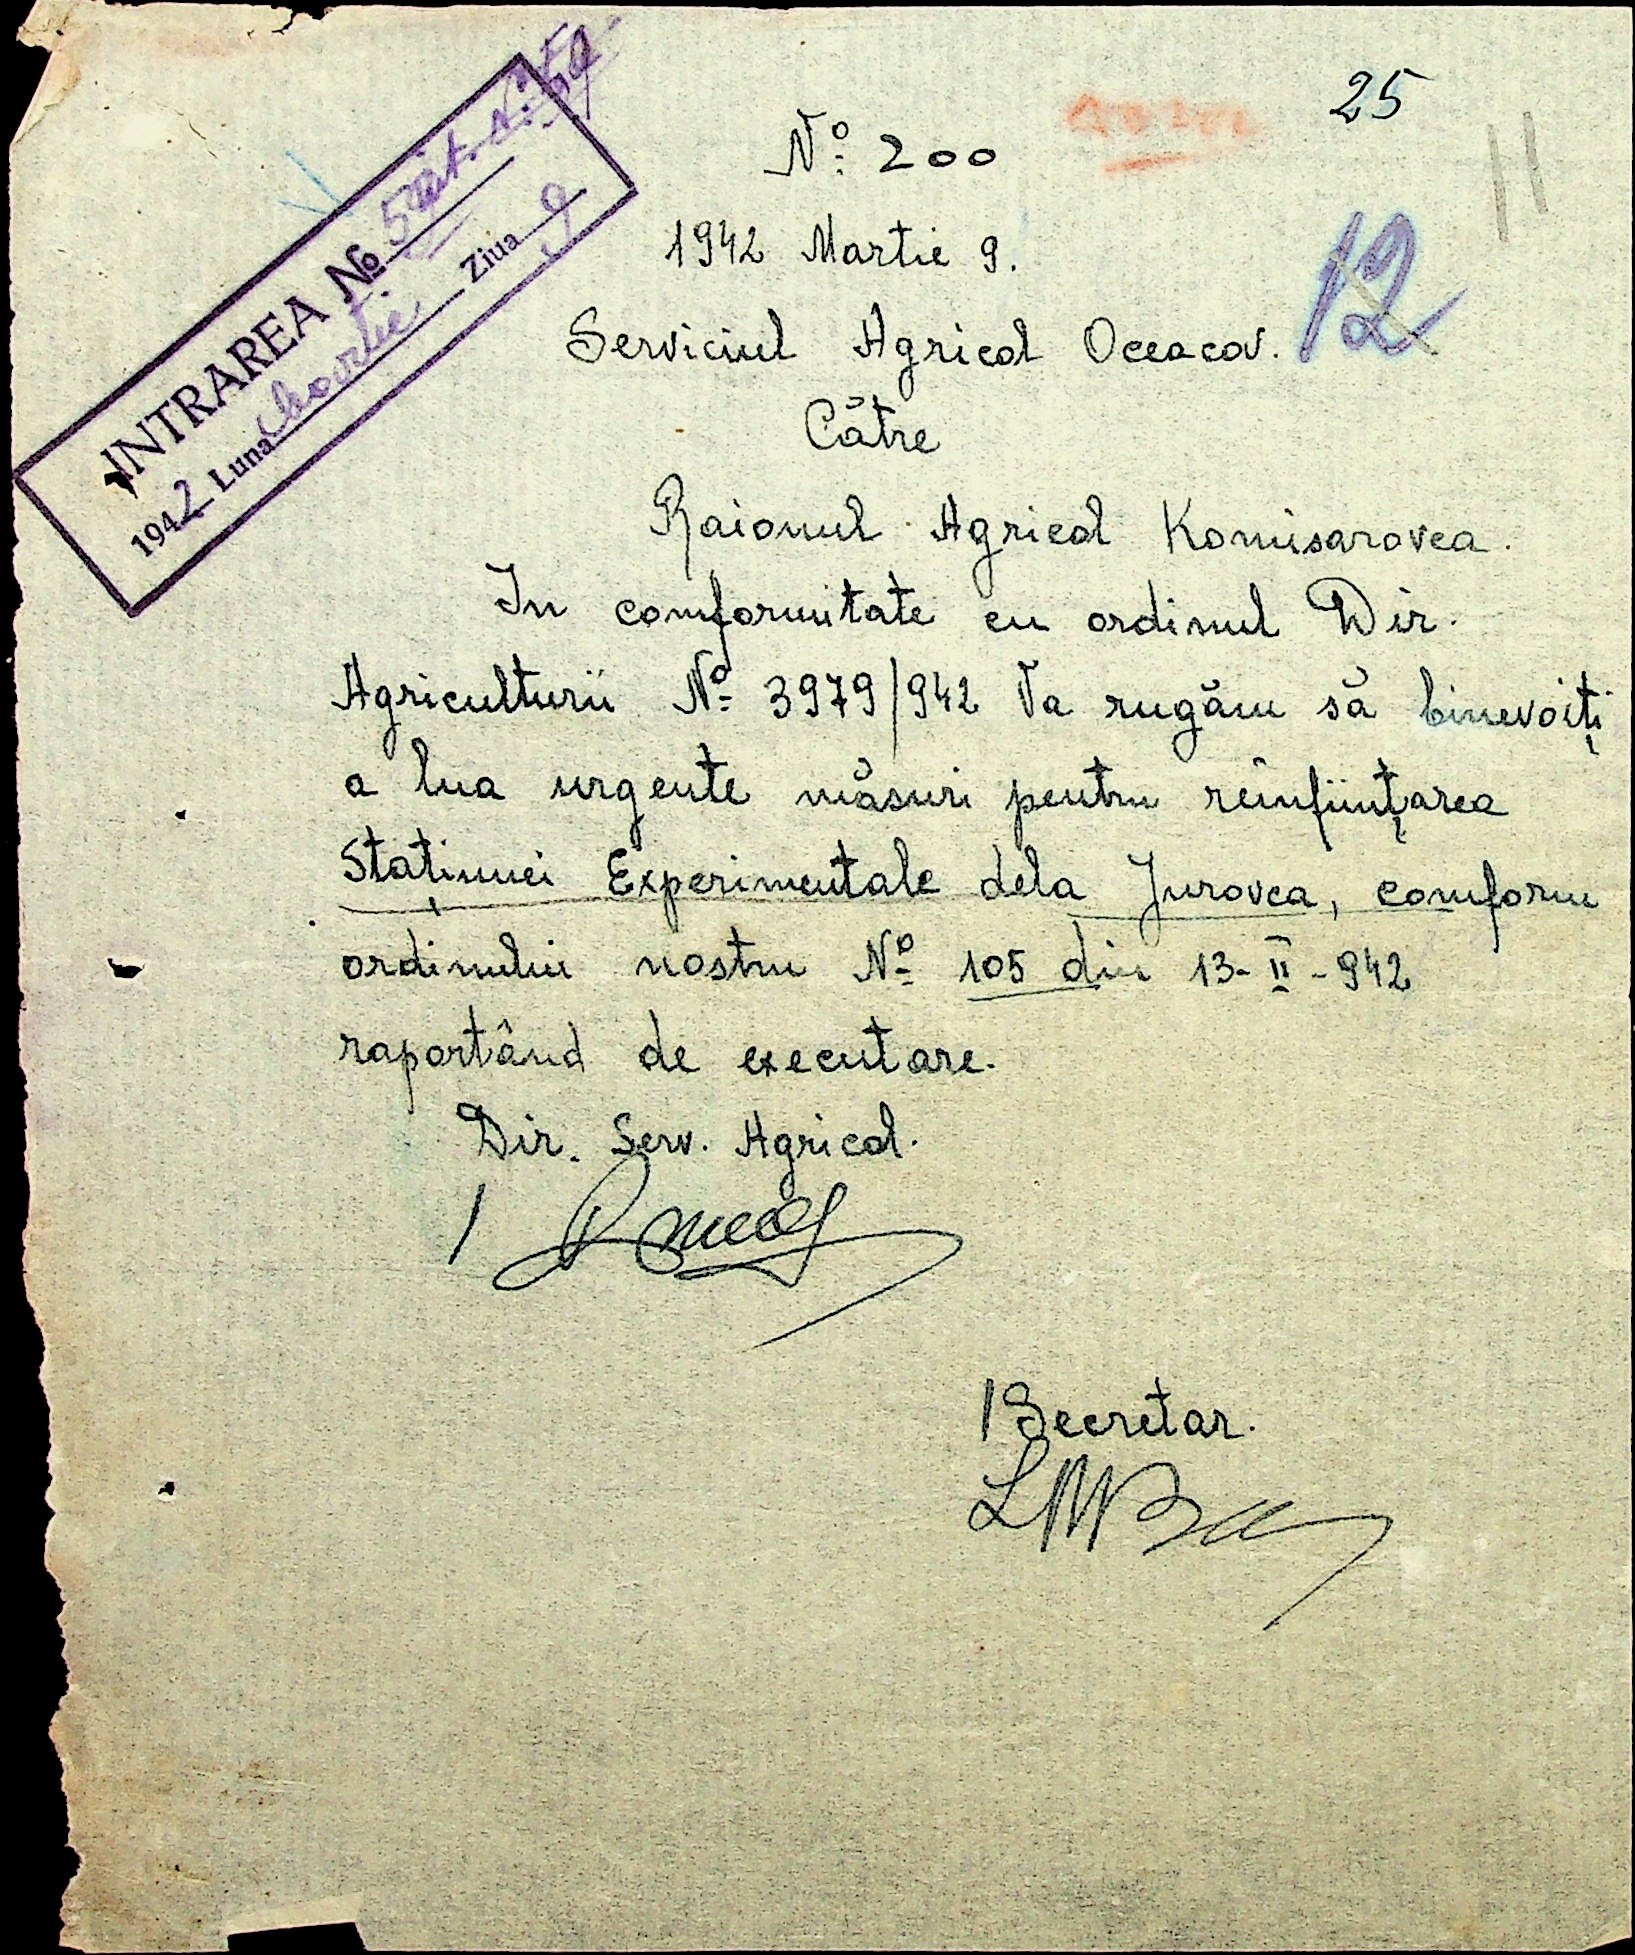 25
Nº 200
11
1942 Martie 9.
12
Serviciul Agricol Oceacov.
Către
Raionul Agricol Komisarovca.
INTRAREA №
1942 Luna Martie Ziua 9
In comformitate cu ordinul Dir.
Agriculturii Nº 3979/942 Va rugăm să binevoiți
a lua urgente măsuri pentru reînființarea
Stațiunei Experimentale dela Jurovca, comform
ordinului nostru Nº 105 din 13-II-942
raportând de executare.
Dir. Serv. Agricol.
/
/ Secretar.